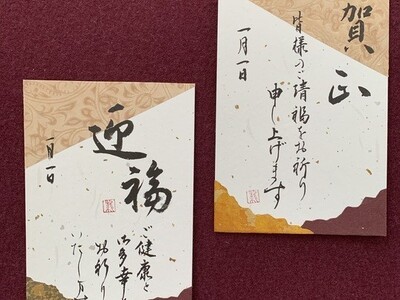 賀正
皆様のご清福をお祈り
申し上げます
一月一日
迎福
ご健康と
ご多幸を
お祈り
いたします
一月一日